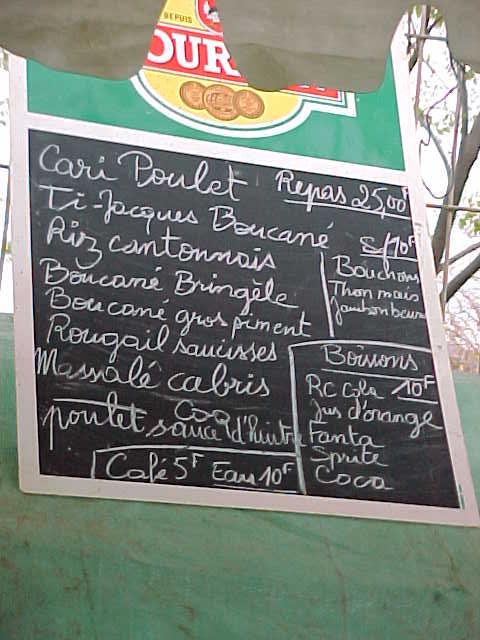 DEPUIS
Cari Poulet Repas 25,00F
Ti-Jacques Boucané
Riz cantonnais
Boucané Bringèle
Boucané gros piment
Rougail saucisses
Massalé cabris
Coq
poulet sauce d'huitre
Café 5F Eau 10F
S/ 10F
Bouchons
Thon mais
Jambon beurre
Boissons
RC Cola 10F
Jus d'orange
Fanta
Sprite
Coca